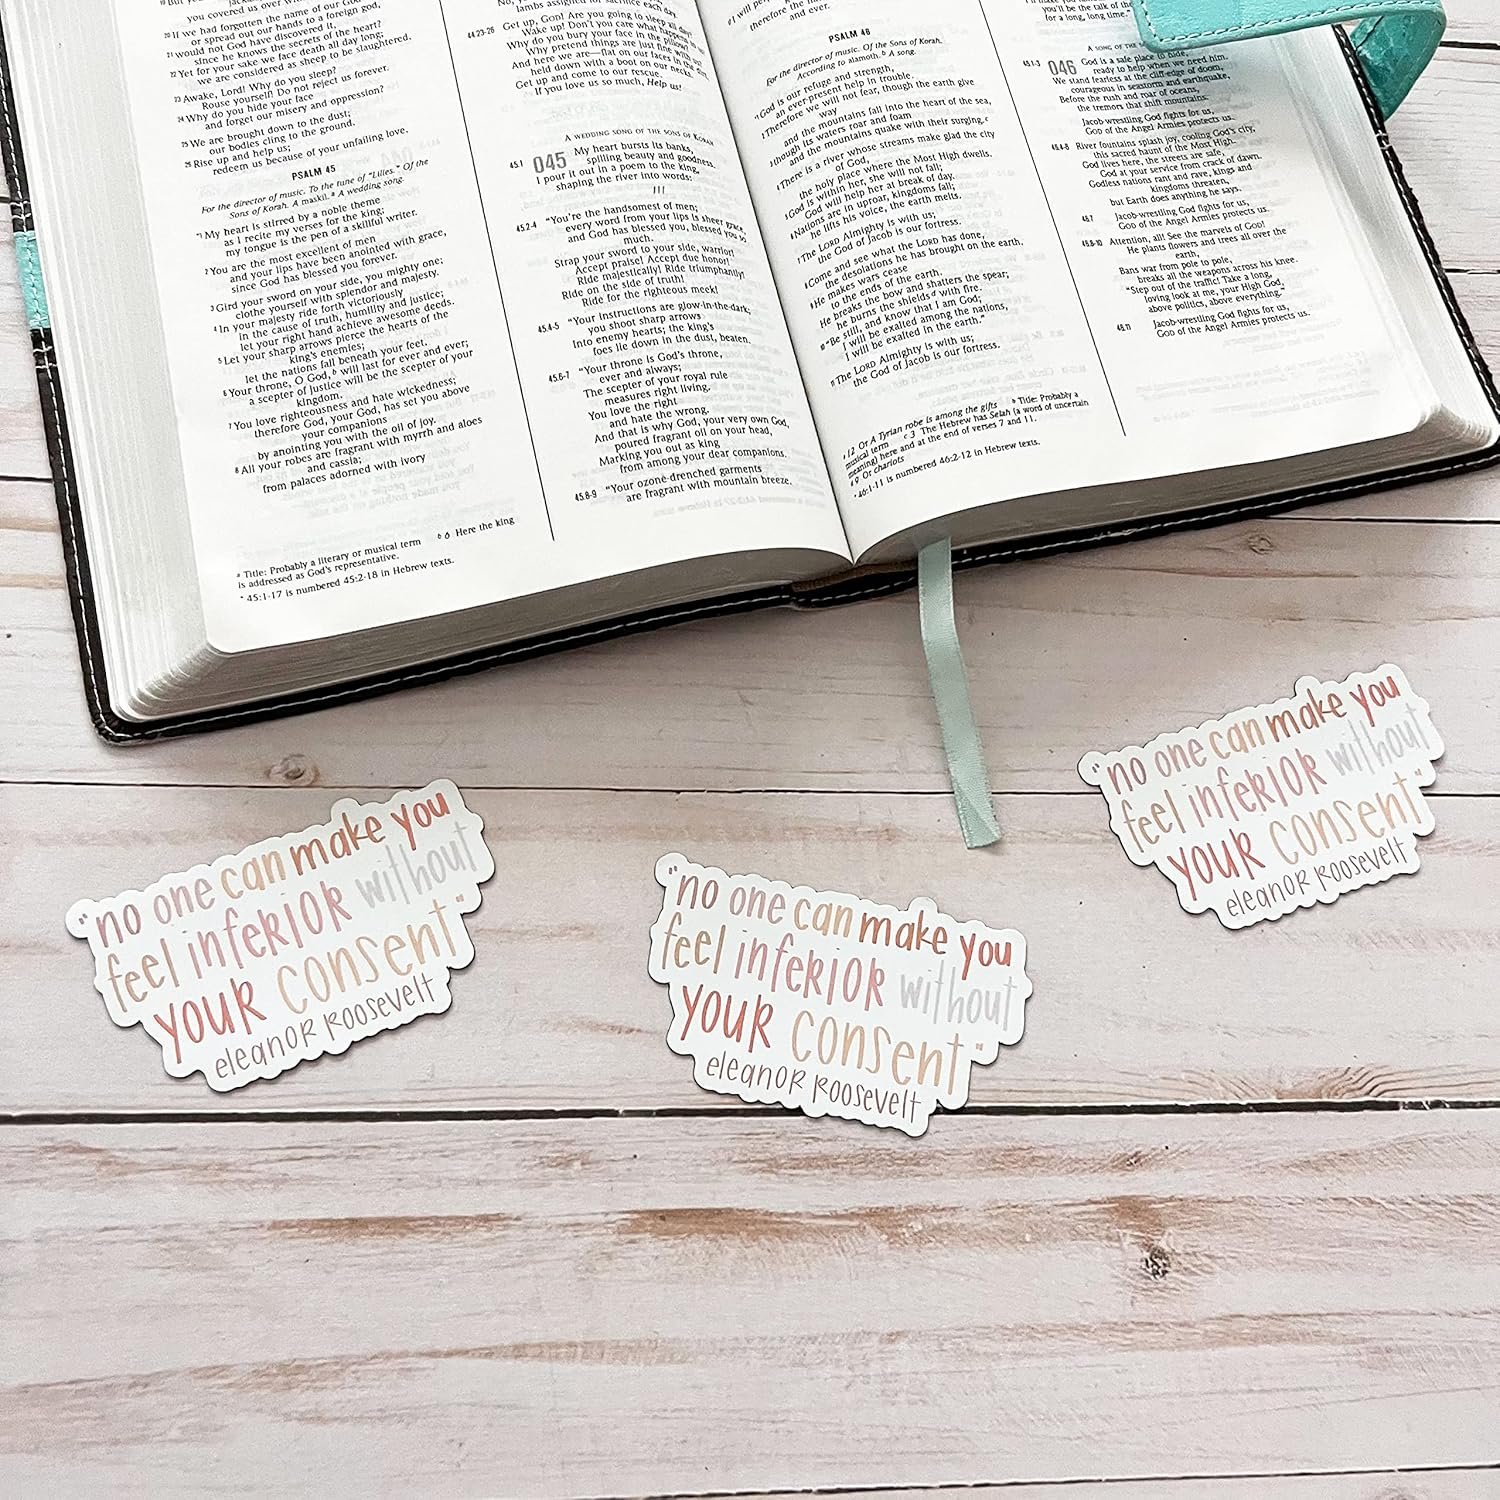 you covered us over with
20 If we had forgotten the name of our God
or spread out our hands to a foreign god,
21 would not God have discovered it,
since he knows the secrets of the heart?
22 Yet for your sake we face death all day long;
we are considered as sheep to be slaughtered.
23 Awake, Lord! Why do you sleep?
Rouse yourself! Do not reject us forever.
24 Why do you hide your face
and forget our misery and oppression?
25 We are brought down to the dust;
our bodies cling to the ground.
26 Rise up and help us;
redeem us because of your unfailing love.
PSALM 45
For the director of music. To the tune of "Lilies." Of the
Sons of Korah. A maskil. a A wedding song.
*1 My heart is stirred by a noble theme
as I recite my verses for the king;
my tongue is the pen of a skillful writer.
2 You are the most excellent of men
and your lips have been anointed with grace,
since God has blessed you forever.
3 Gird your sword on your side, you mighty one;
clothe yourself with splendor and majesty.
4 In your majesty ride forth victoriously
in the cause of truth, humility and justice;
let your right hand achieve awesome deeds.
5 Let your sharp arrows pierce the hearts of the
king's enemies;
let the nations fall beneath your feet.
6 Your throne, O God, b will last for ever and ever;
a scepter of justice will be the scepter of your
kingdom.
7 You love righteousness and hate wickedness;
therefore God, your God, has set you above
your companions
by anointing you with the oil of joy.
8 All your robes are fragrant with myrrh and aloes
and cassia;
from palaces adorned with ivory
a Title: Probably a literary or musical term b 6 Here the king
is addressed as God's representative.
* 45:1-17 is numbered 45:2-18 in Hebrew texts.
lambs assigned for sacrifice each day.
44.23-26 Get up, GOD! Are you going to sleep all day?
Wake up! Don't you care what happens to us?
Why do you bury your face in the pillow?
Why pretend things are just fine with us?
And here we are—flat on our faces in the dirt,
held down with a boot on our necks.
Get up and come to our rescue.
If you love us so much, Help us!
A WEDDING SONG OF THE SONS OF KORAH
45.1 045 My heart bursts its banks,
spilling beauty and goodness.
I pour it out in a poem to the king,
shaping the river into words:
///
45.2-4 "You're the handsomest of men;
every word from your lips is sheer grace,
and God has blessed you, blessed you so
much.
Strap your sword to your side, warrior!
Accept praise! Accept due honor!
Ride majestically! Ride triumphantly!
Ride on the side of truth!
Ride for the righteous meek!
45.4-5 "Your instructions are glow-in-the-dark;
you shoot sharp arrows
Into enemy hearts; the king's
foes lie down in the dust, beaten.
45.6-7 "Your throne is God's throne,
ever and always;
The scepter of your royal rule
measures right living.
You love the right
and hate the wrong.
And that is why God, your very own God,
poured fragrant oil on your head,
Marking you out as king
from among your dear companions.
45.8-9 "Your ozone-drenched garments
are fragrant with mountain breeze.
and ever.
PSALM 46
For the director of music. Of the Sons of Korah.
According to alamoth. b A song.
*1 God is our refuge and strength,
an ever-present help in trouble.
2 Therefore we will not fear, though the earth give
way
and the mountains fall into the heart of the sea,
3 though its waters roar and foam
and the mountains quake with their surging. c
4 There is a river whose streams make glad the city
of God,
the holy place where the Most High dwells.
5 God is within her, she will not fall;
God will help her at break of day.
6 Nations are in uproar, kingdoms fall;
he lifts his voice, the earth melts.
7 The LORD Almighty is with us;
the God of Jacob is our fortress.
8 Come and see what the LORD has done,
the desolations he has brought on the earth.
9 He makes wars cease
to the ends of the earth.
He breaks the bow and shatters the spear;
he burns the shields d with fire.
10 "Be still, and know that I am God;
I will be exalted among the nations,
I will be exalted in the earth."
11 The LORD Almighty is with us;
the God of Jacob is our fortress.
a 12 Or A Tyrian robe is among the gifts b Title: Probably a
musical term c 3 The Hebrew has Selah (a word of uncertain
meaning) here and at the end of verses 7 and 11.
d 9 Or chariots
* 46:1-11 is numbered 46:2-12 in Hebrew texts.
you'll be the talk of the
for a long, long time."
A SONG OF THE
46.1-3 046 God is a safe place to hide,
ready to help when we need him.
We stand fearless at the cliff-edge of doom,
courageous in seastorm and earthquake,
Before the rush and roar of oceans,
the tremors that shift mountains.
Jacob-wrestling God fights for us,
GOD of the Angel Armies protects us.
46.4-6 River fountains splash joy, cooling God's city,
this sacred haunt of the Most High.
God lives here, the streets are safe,
God at your service from crack of dawn.
Godless nations rant and rave, kings and
kingdoms threaten,
but Earth does anything he says.
46.7 Jacob-wrestling God fights for us,
GOD of the Angel Armies protects us.
46.8-10 Attention, all! See the marvels of GOD!
He plants flowers and trees all over the
earth,
Bans war from pole to pole,
breaks all the weapons across his knee.
"Step out of the traffic! Take a long,
loving look at me, your High God,
above politics, above everything."
46.11 Jacob-wrestling God fights for us,
GOD of the Angel Armies protects us.
"no one can make you
feel inferior without
your consent"
eleanor roosevelt
"no one can make you
feel inferior without
your consent"
eleanor roosevelt
"no one can make you
feel inferior without
your consent"
eleanor roosevelt